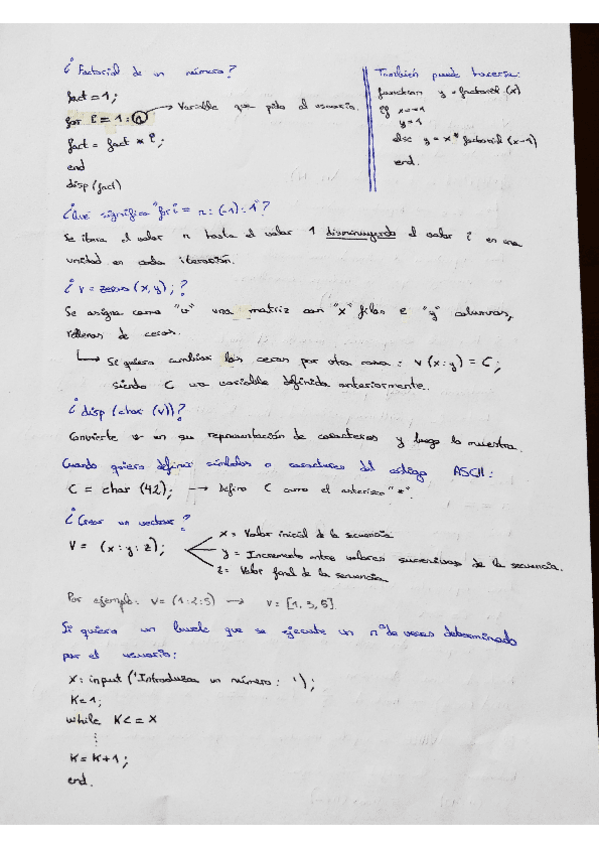 ¿Factorial de un número?
fact = 1;
for i = 1:n → Variable que pido al usuario.
fact = fact * i;
end
disp(fact)
También puede hacerse:
function y = factorial(x)
if x == 1
y = 1
else y = x * factorial(x-1)
end.
¿Qué significa "for i = n:(-1):1"?
Se itera el valor n hasta el valor 1 disminuyendo el valor i en una
unidad en cada iteración.
¿v = zeros(x,y);?
Se asigna como "v" una matriz con "x" filas e "y" columnas,
rellenas de ceros.
↳ Si quiero cambiar los ceros por otra cosa: v(x:y) = C;
siendo C una variable definida anteriormente.
¿disp(char(v))?
Convierte v en su representación de caracteres y luego lo muestra.
Cuando quiero definir símbolos o caracteres del código ASCII:
C = char(42); → Defino C como el asterisco "*".
¿Crear un vector?
V = (x:y:z);
x = Valor inicial de la secuencia
y = Incremento entre valores sucesivos de la secuencia.
z = Valor final de la secuencia
Por ejemplo: V = (1:2:5) → V = [1, 3, 5].
Si quiero un bucle que se ejecute un nº de veces determinado
por el usuario:
X = input('Introduzca un número: ');
K = 1;
while K <= X
⋮
K = K + 1;
end.